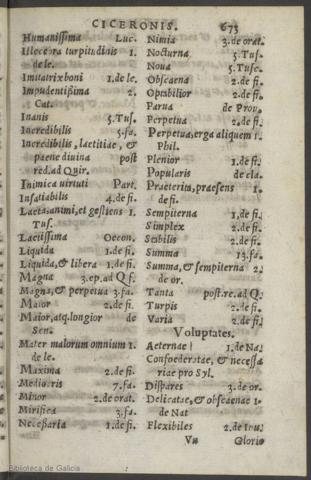 CICERONIS. 675
Humanissima Luc.
Illecebra turpitudinis 1.
de le.
Imitatrix boni 1. de le.
Impudentißima 2.
Cat.
Inanis 5. Tus.
Incredibilis 5. fa.
Incredibilis, laetitiae, &
paene divina post
red. ad Quir.
Inimica uirtuti Part.
Insatiabilis 4. de fi.
Laeta, animi, et gestiens 1.
Tus.
Lactissima Oecon.
Liquida 1. de fi.
Liquida, & libera 1. de fi.
Magna 3. ep. ad Q f.
Magna, & perpetua 3. fa.
Maior 2. de fi.
Maior, atq. longior de
Sen.
Mater malorum omnium 1.
de le.
Maxima 2. de fi.
Mediocris 7. fa.
Minor 2. de orat.
Mirifica 3. fa.
Neceßaria 1. de fi.
Nimia 3. de orat.
Nocturna 5. Tus.
Noua 5. Tusc.
Obscaena 2. de fi.
Optabilior 2. de fi.
Parua de Prou.
Perpetua 2. de fi.
Perpetua, erga aliquem 1.
Phil.
Plenior 1. de fi.
Popularis de cla.
Praeterita, praesens 1.
de fi.
Sempiterna 1. de fi.
Simplex 2. de fi.
Stabilis 2. de fi.
Summa 13. fa.
Summa, & sempiterna 2.
de or.
Tanta post. re. ad Q.
Turpis 2. de fi.
Varia 2. de fi.
Voluptates.
Aeternae 1. de Na.
Confoederatae, & neceßa
riae pro Syl.
Dispares 3. de or.
Delicatae, & obscaenae 1.
de Nat
Flexibiles 2. de inu.
Vu Glorio
Biblioteca de Galicia